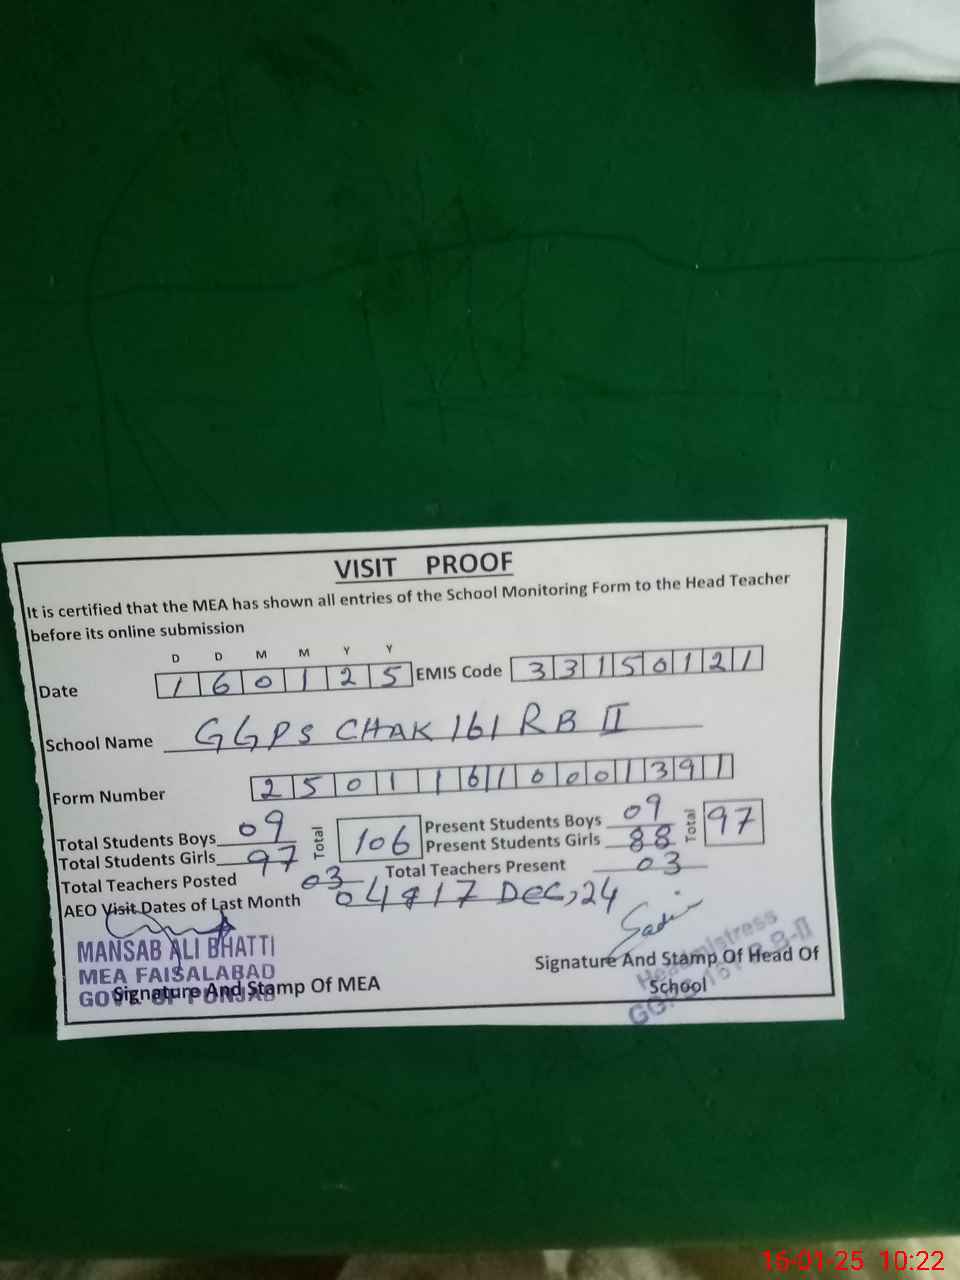 VISIT PROOF
It is certified that the MEA has shown all entries of the School Monitoring Form to the Head Teacher
before its online submission
D D M M Y Y
Date 160125 EMIS Code 33150121
School Name GGPS CHAK 161 RB II
Form Number 25011610001391
Total Students Boys 09 Total 106 Present Students Boys 09 Total 97
Total Students Girls 97 Present Students Girls 88
Total Teachers Posted 03 Total Teachers Present 03
AEO Visit Dates of Last Month 04 & 17 Dec, 24
MANSAB ALI BHATTI
MEA FAISALABAD
GOVT. OF PUNJAB
Signature And Stamp Of MEA
Headmistress
Signature And Stamp Of Head Of
School
16-01-25 10:22